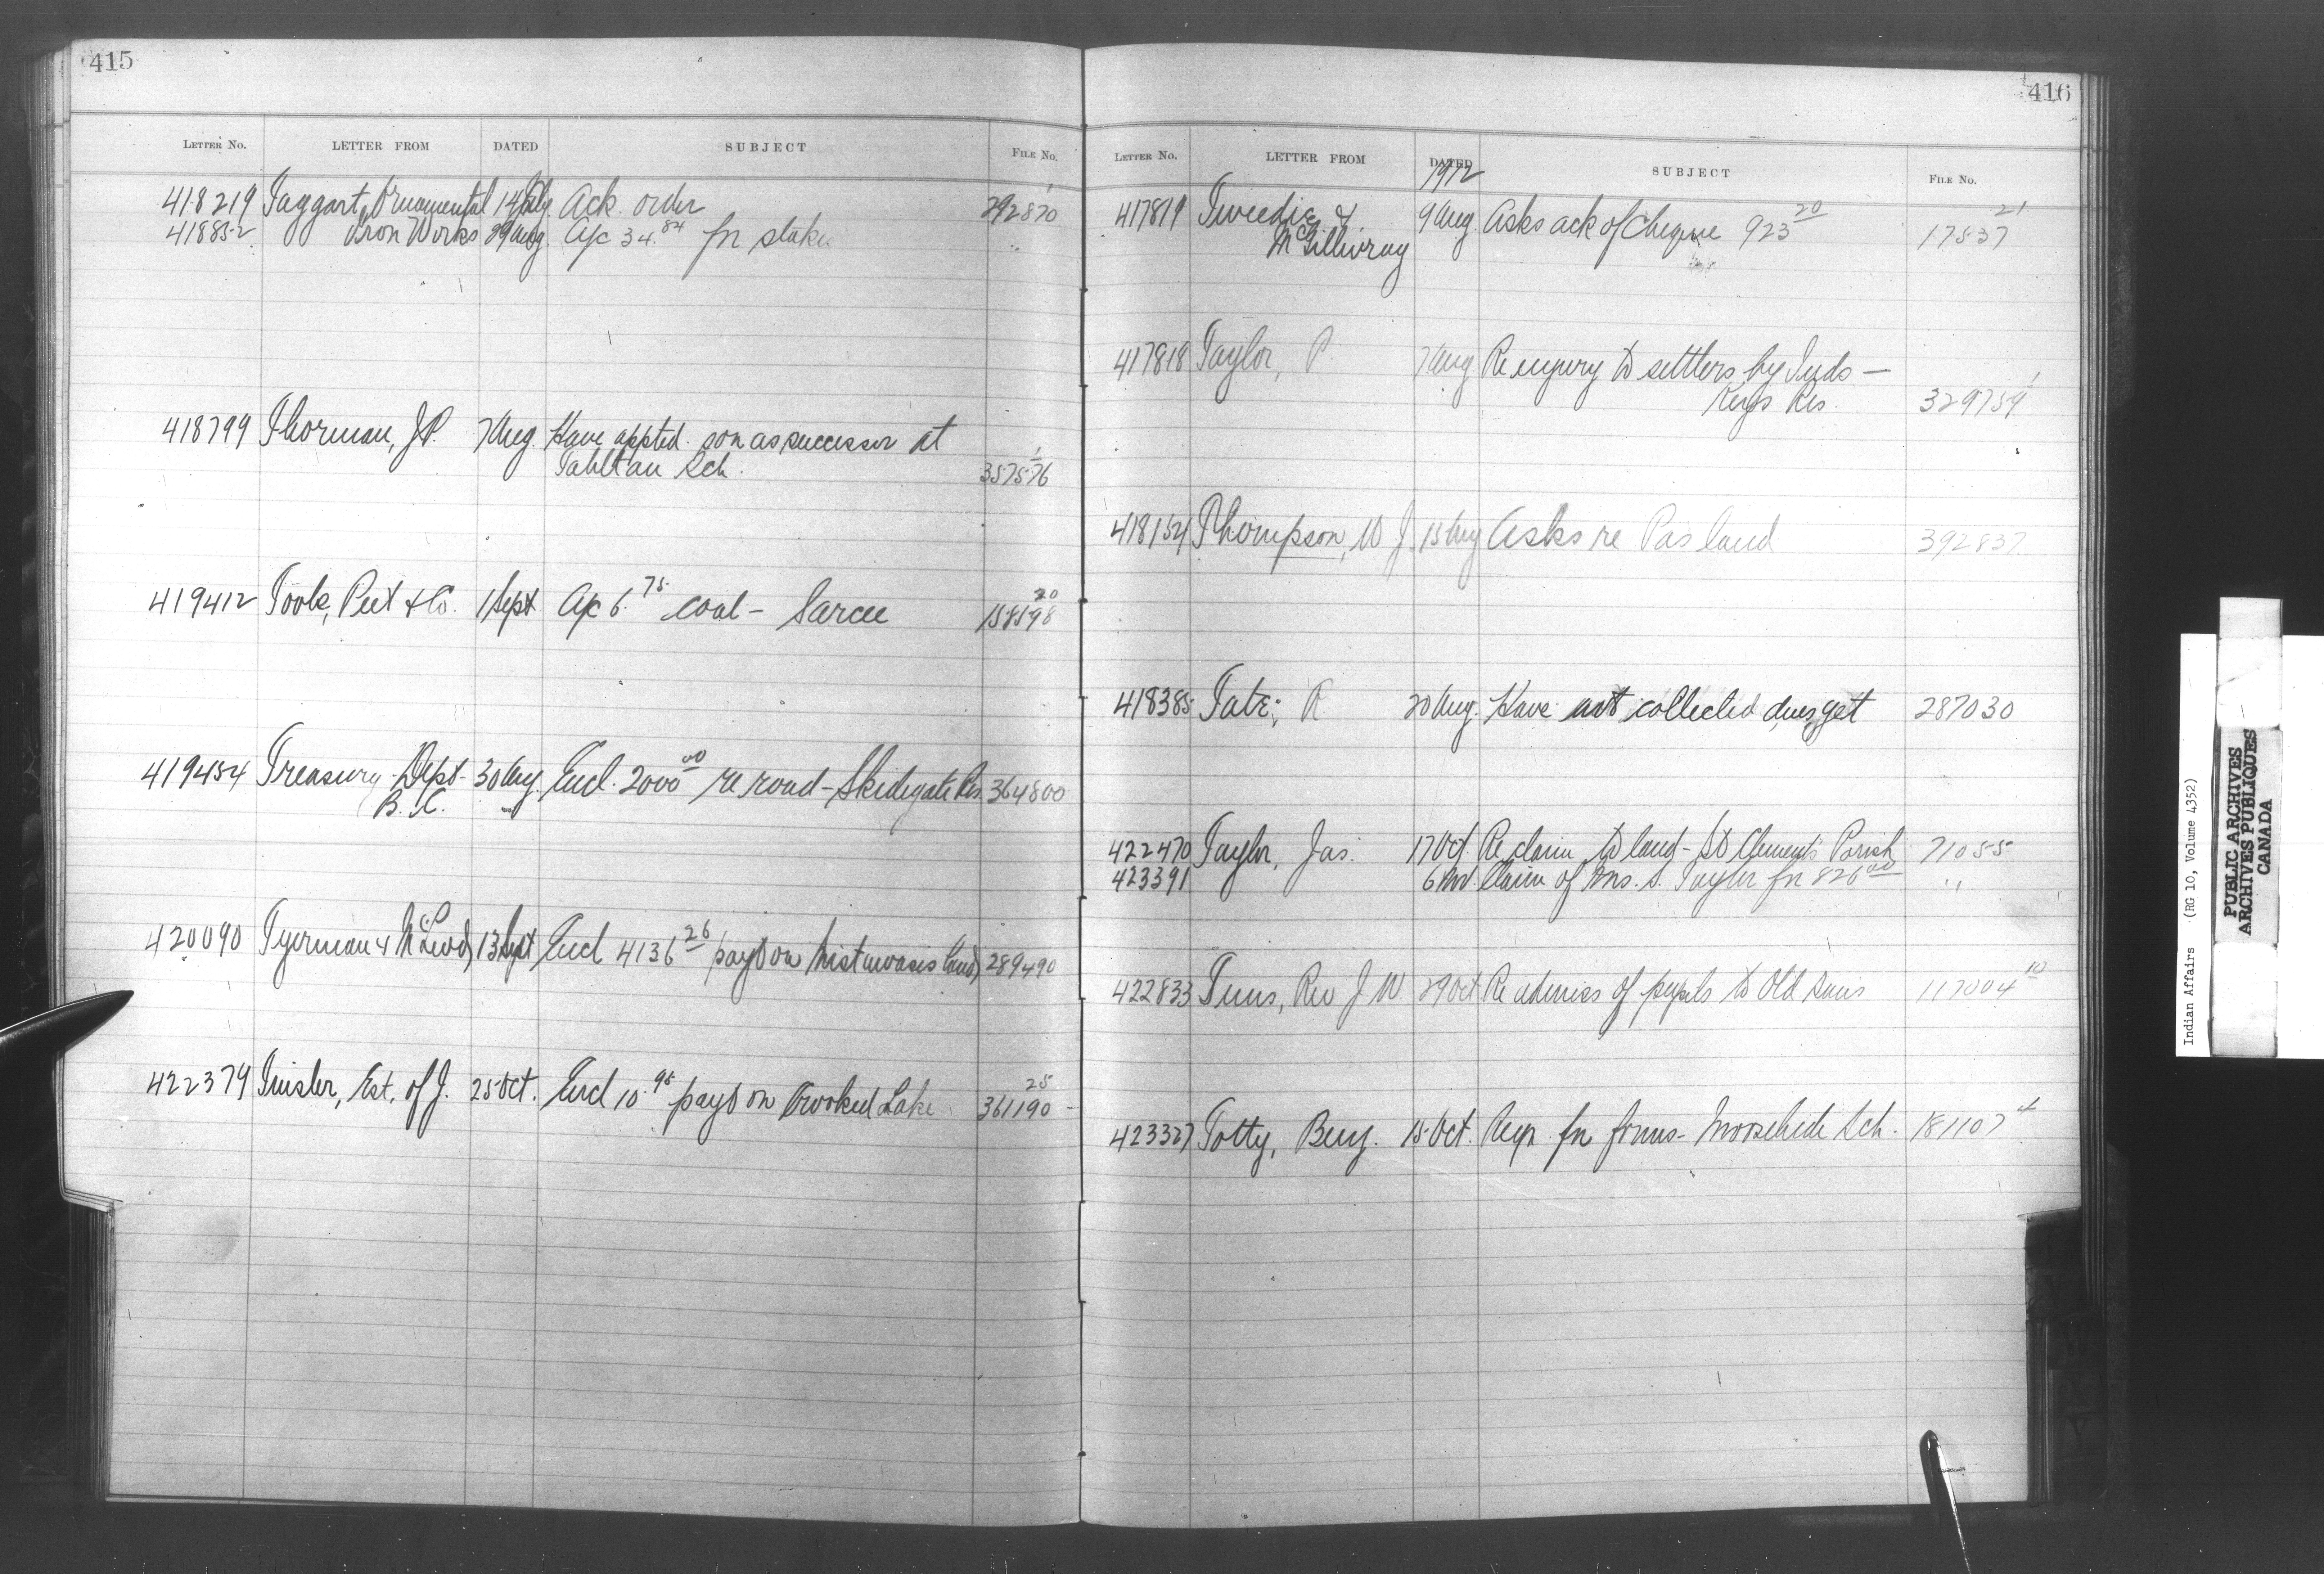 415
LETTER NO. LETTER FROM DATED SUBJECT FILE NO.
418219 Taggart Ornamental 14 Aug Ack. order 292870 1
418852 Iron Works 29 Aug. A/c 34.84 fr stakes "
418799 Thorman, J.P. 7 Aug. Have appted. son as successor at
Tahltan Sch. 357576 1
419412 Toole, Peet & Co. 1 Sept A/c 6.75 coal - Sarcee 158598 20
419454 Treasury Dept 30 Aug. Encl. 2000 00 re road - Skidegate Res. 364800
B.C.
420090 Tyerman & McLeod, 13 Sept Encl 4136 26 payt on Mistawasis land, 289490
422379 Est. of J. 25 Oct. Encl 10.95 payt on Crooked Lake 361190 25
416
LETTER NO. LETTER FROM DATED SUBJECT FILE NO.
1912
417819 Tweedie & 9 Aug. Asks ack of Cheque 923 20 17537 21
McGillivray
417818 Taylor, P 7 Aug Re injury to settlers by Inds —
Keys Res. 329759 1
418154 Thompson, W J. 15 Aug Asks re Pas land 392837
418385 Tate, R 20 Aug. Have not collected dues yet 287030
422470 Taylor, Jas. 17 Oct. Re claim to land - St Clements Parish 71055
423391 6 Nov. Claim of Mrs. S. Taylor fr 826 00 "
422833 Tims, Rev J W. 29 Oct Re admiss of pupils to Old Suns 117004 10
423327 Totty, Benj. 15 Oct. Reqn. fr forms - Moosehide Sch. 181107 4
Indian Affairs (RG 10, Volume 4352)
PUBLIC ARCHIVES
ARCHIVES PUBLIQUES
CANADA